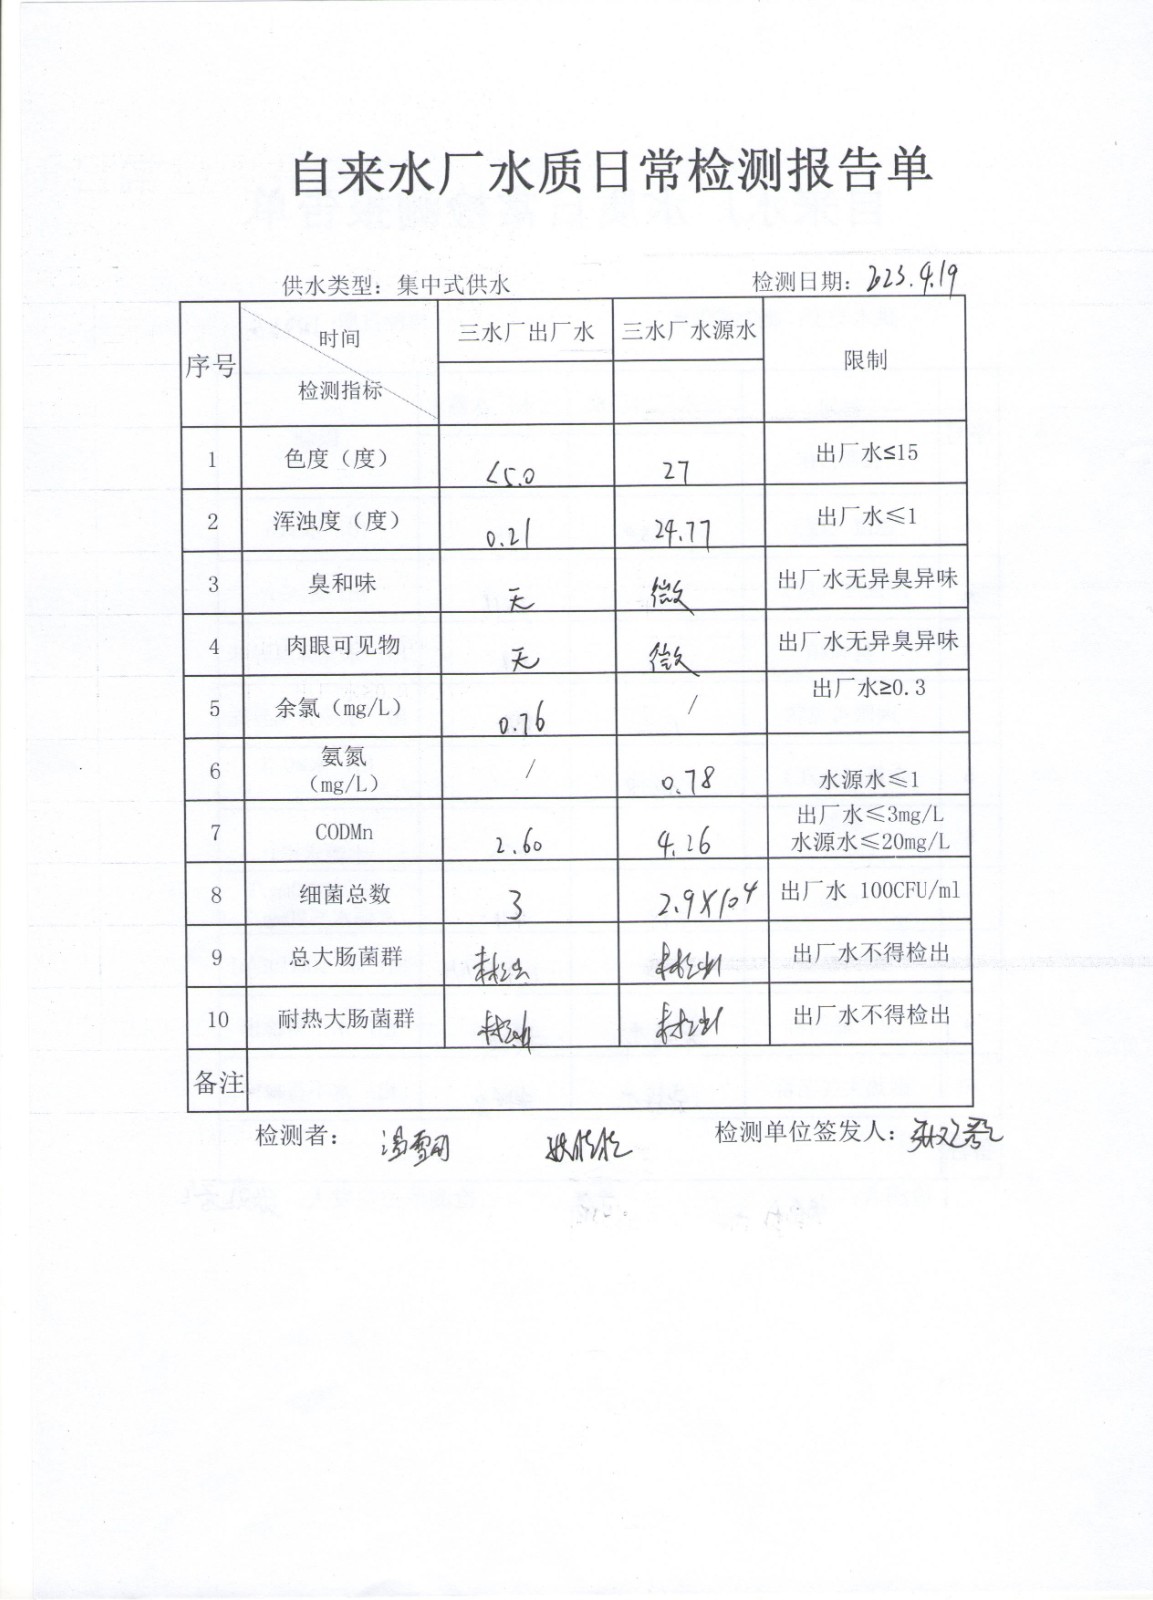 自来水厂水质日常检测报告单
供水类型：集中式供水 检测日期：2023.4.19
序号 时间 检测指标 三水厂出厂水 三水厂水源水 限制
1 色度（度） <5.0 27 出厂水≤15
2 浑浊度（度） 0.21 24.77 出厂水≤1
3 臭和味 无 微 出厂水无异臭异味
4 肉眼可见物 无 微 出厂水无异臭异味
5 余氯（mg/L） 0.76 / 出厂水≥0.3
6 氨氮 （mg/L） / 0.78 水源水≤1
7 CODMn 2.60 4.26 出厂水≤3mg/L 水源水≤20mg/L
8 细菌总数 3 2.9×10⁴ 出厂水 100CFU/ml
9 总大肠菌群 未检出 未检出 出厂水不得检出
10 耐热大肠菌群 未检出 未检出 出厂水不得检出
备注
检测者： 检测单位签发人：